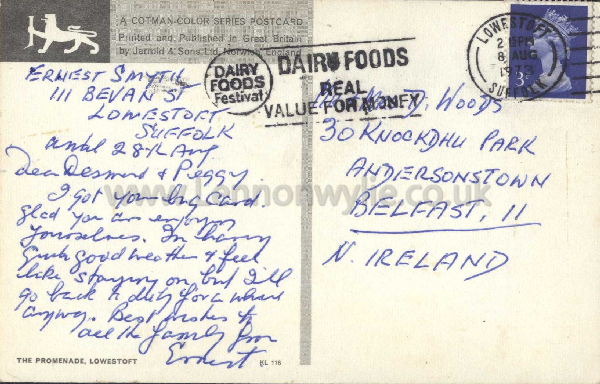 A COTMAN-COLOR SERIES POSTCARD
Printed and Published in Great Britain
by Jarrold & Sons Ltd, Norwich, England
ERNEST SMYTH
111 BEVAN ST
LOWESTOFT
SUFFOLK
until 28th Aug
Dear Desmond & Peggy
I got your big Card.
glad you are enjoying
yourselves. Im having
such good weather & feel
like staying on but I'll
go back to duty for a while
anyway. Best wishes to
all the family from
Ernest
THE PROMENADE, LOWESTOFT
KL 116
DAIRY
FOODS
Festival
DAIRY FOODS
REAL
VALUE FOR MONEY
LOWESTOFT
8 AUG
SUFFOLK
D. WOODS
30 KNOCKDHU PARK
ANDERSONSTOWN
BELFAST, 11
N. IRELAND
www.Lennonwylie.co.uk